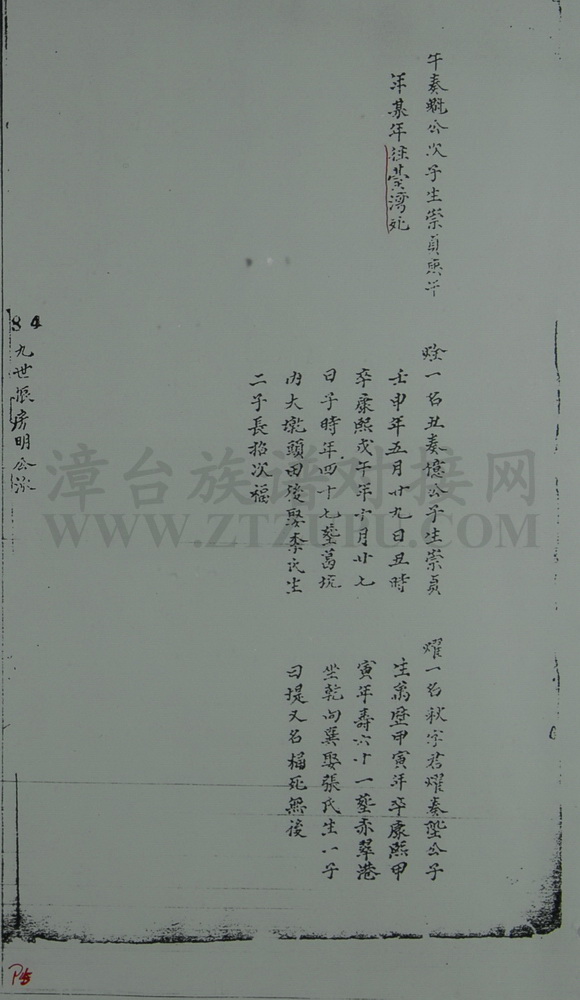 午奏概公次子生崇貞庚午
年某年往葉湾死
一名丑奏億公子生崇貞
壬申年五月廿九日丑時
卒康熙戊午年十月廿七
日子時年四十七塟葛坑
内大墘頭田墘娶李氏生
二子長招次福
耀一名秋字君耀奏公子
生萬歷甲寅年卒康熙甲
寅年壽六十一塟赤翠港
坐乾向巽娶張氏生一子
曰堤又名楅死無後
84
九世長房明公派
漳台族谱对接网
WWW.ZTZUPU.COM
P5